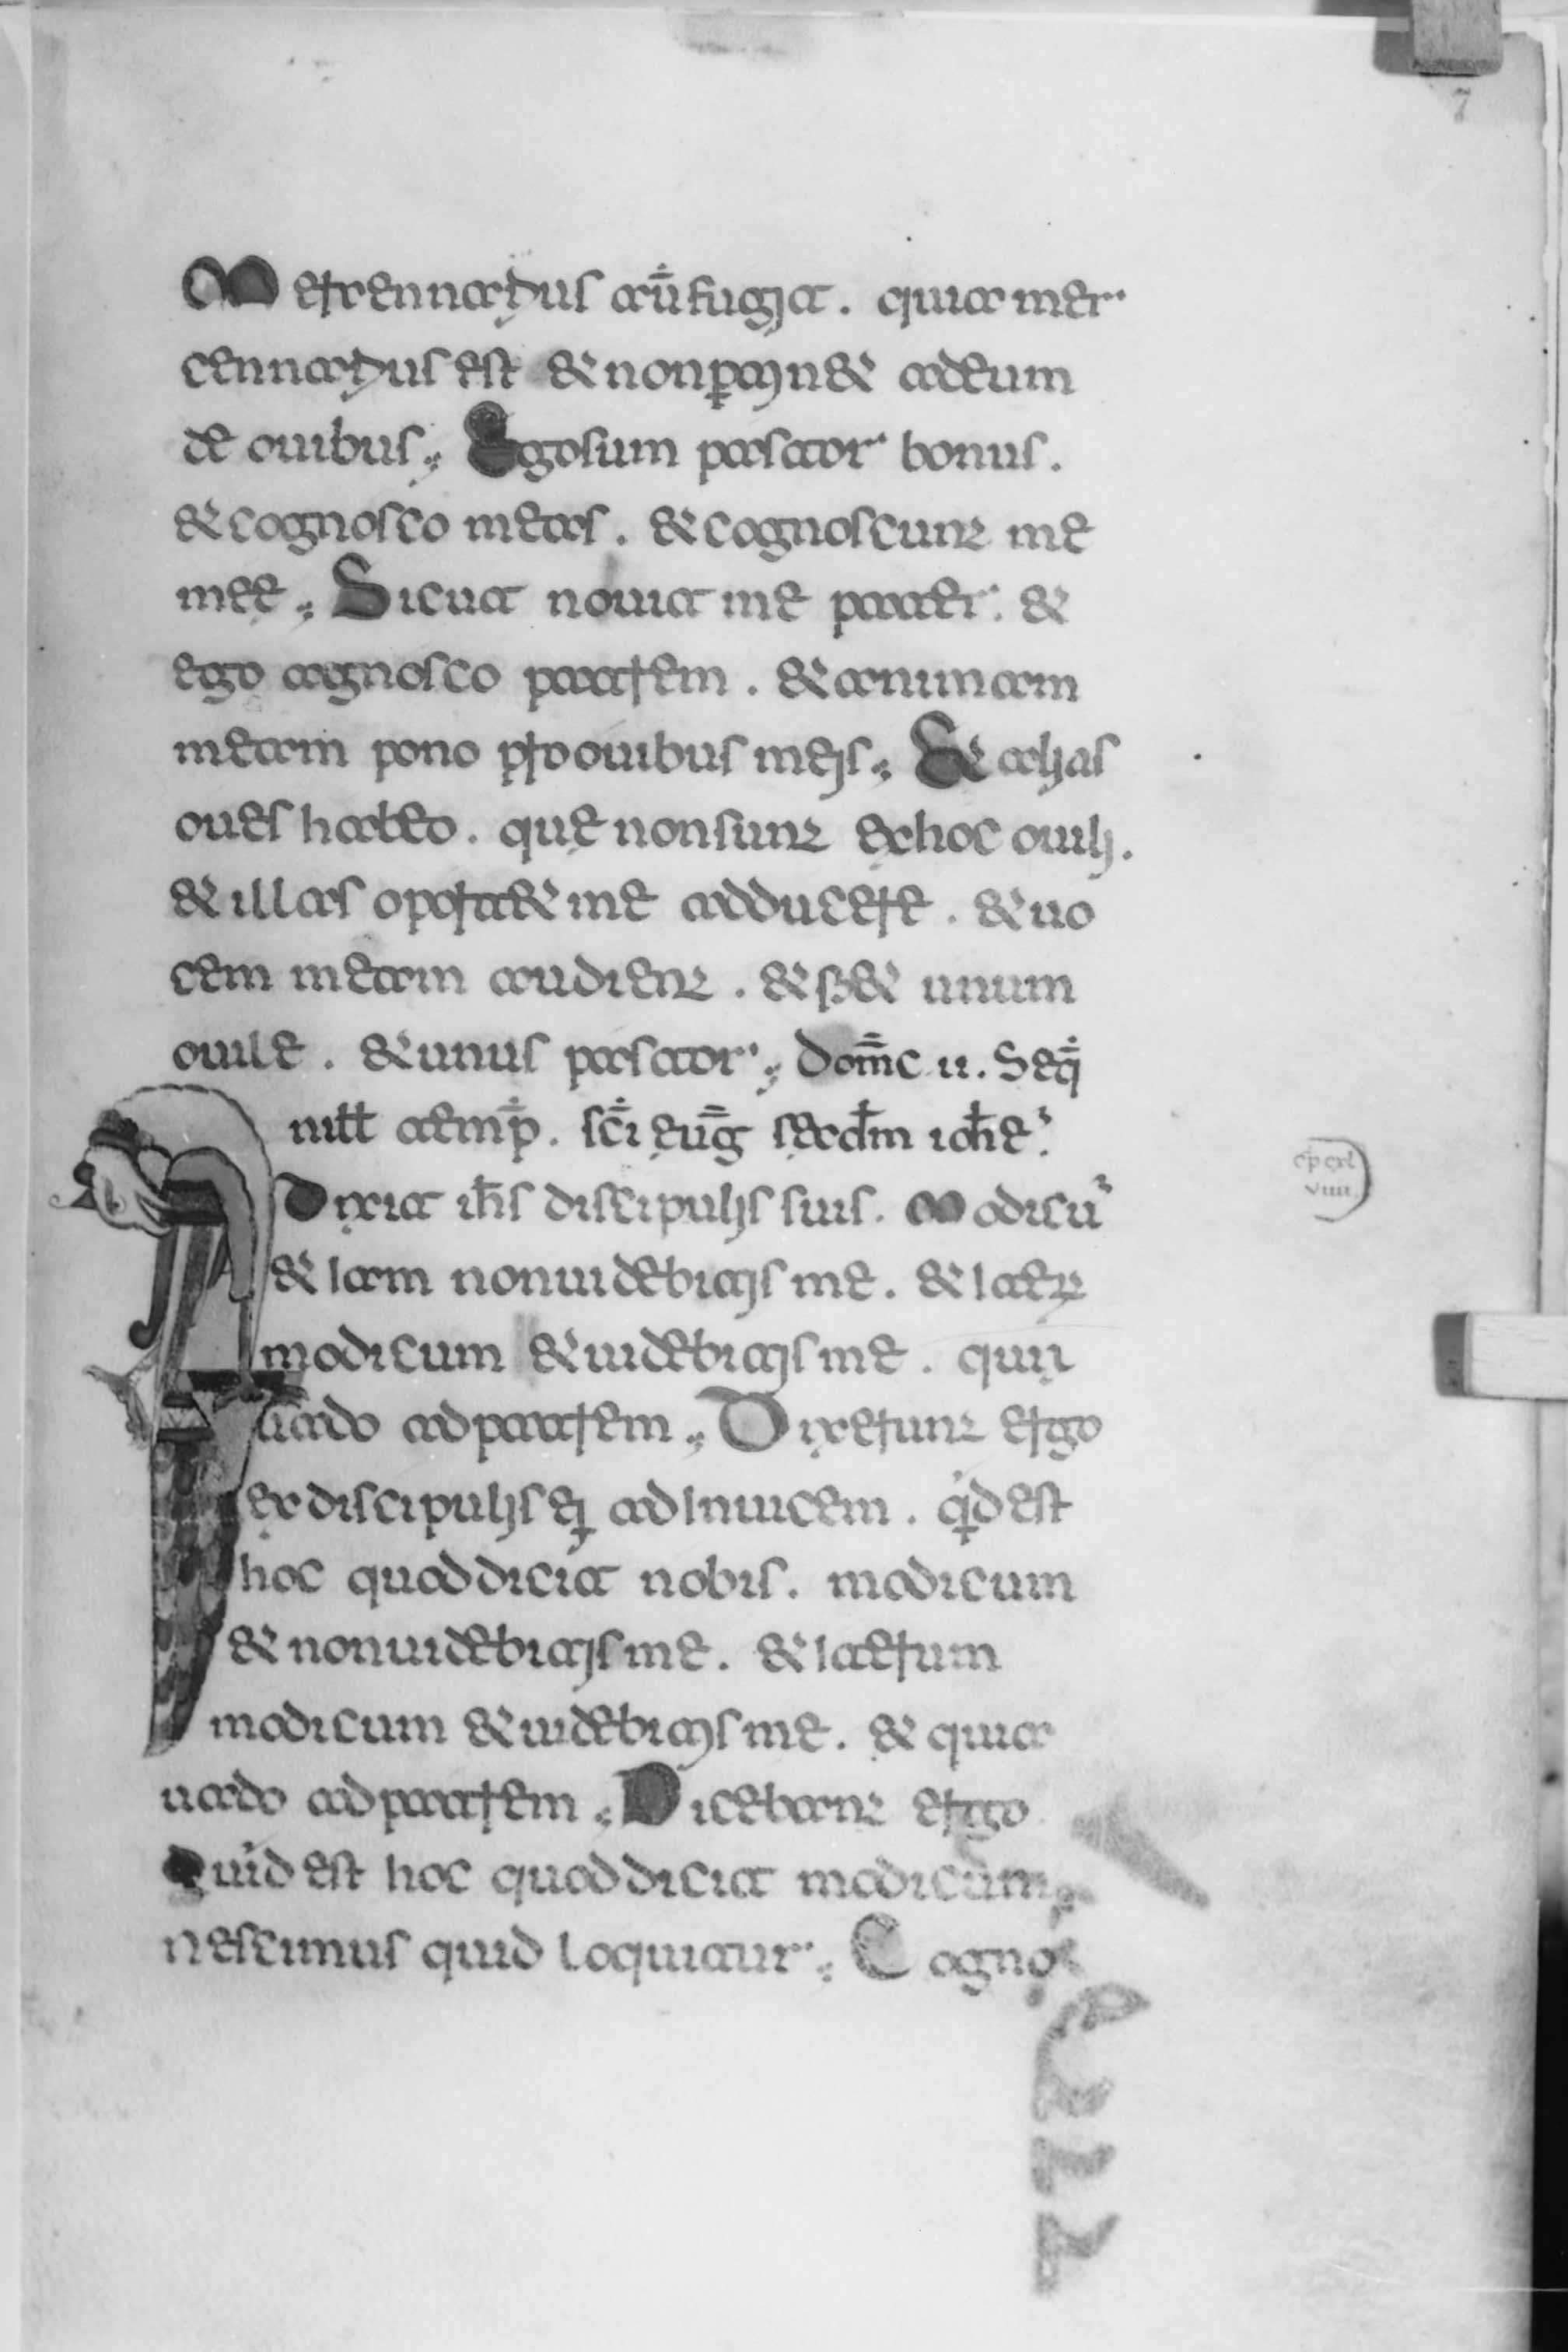 7
Mercennarius aū fugit. quia mer
cennarius est & non ꝑtin& adeum
de ouibus. Ego sum pastor bonus.
& cognosco meas. & cognoscunt me
meę. Sicut nouit me pater. &
ego agnosco patrem. & animam
meam pono pro ouibus meis. Et alias
oues habeo. quę non sunt ex hoc ouili.
& illas oportet me adducere. & uo
cem meam audient. & fiet unum
ouile. & unus pastor. Dom̄c ii. Seq̄
nitt temp̄. sc̄i eūg secdm ioh̄e.
Dixit ih̄s discipulis suis. Modicū
& iam non uidebitis me. & iterū
modicum & uidebitis me. quia
uado ad patrem. Dixerunt ergo
ex discipulis ei ad inuicem. qd est
hoc quod dicit nobis. modicum
& non uidebitis me. & iterum
modicum & uidebitis me. & quia
uado ad patrem. Dicebant ergo
Quid est hoc quod dicit modicum
nescimus quid loquitur. Cogno
cp cxl
viiii